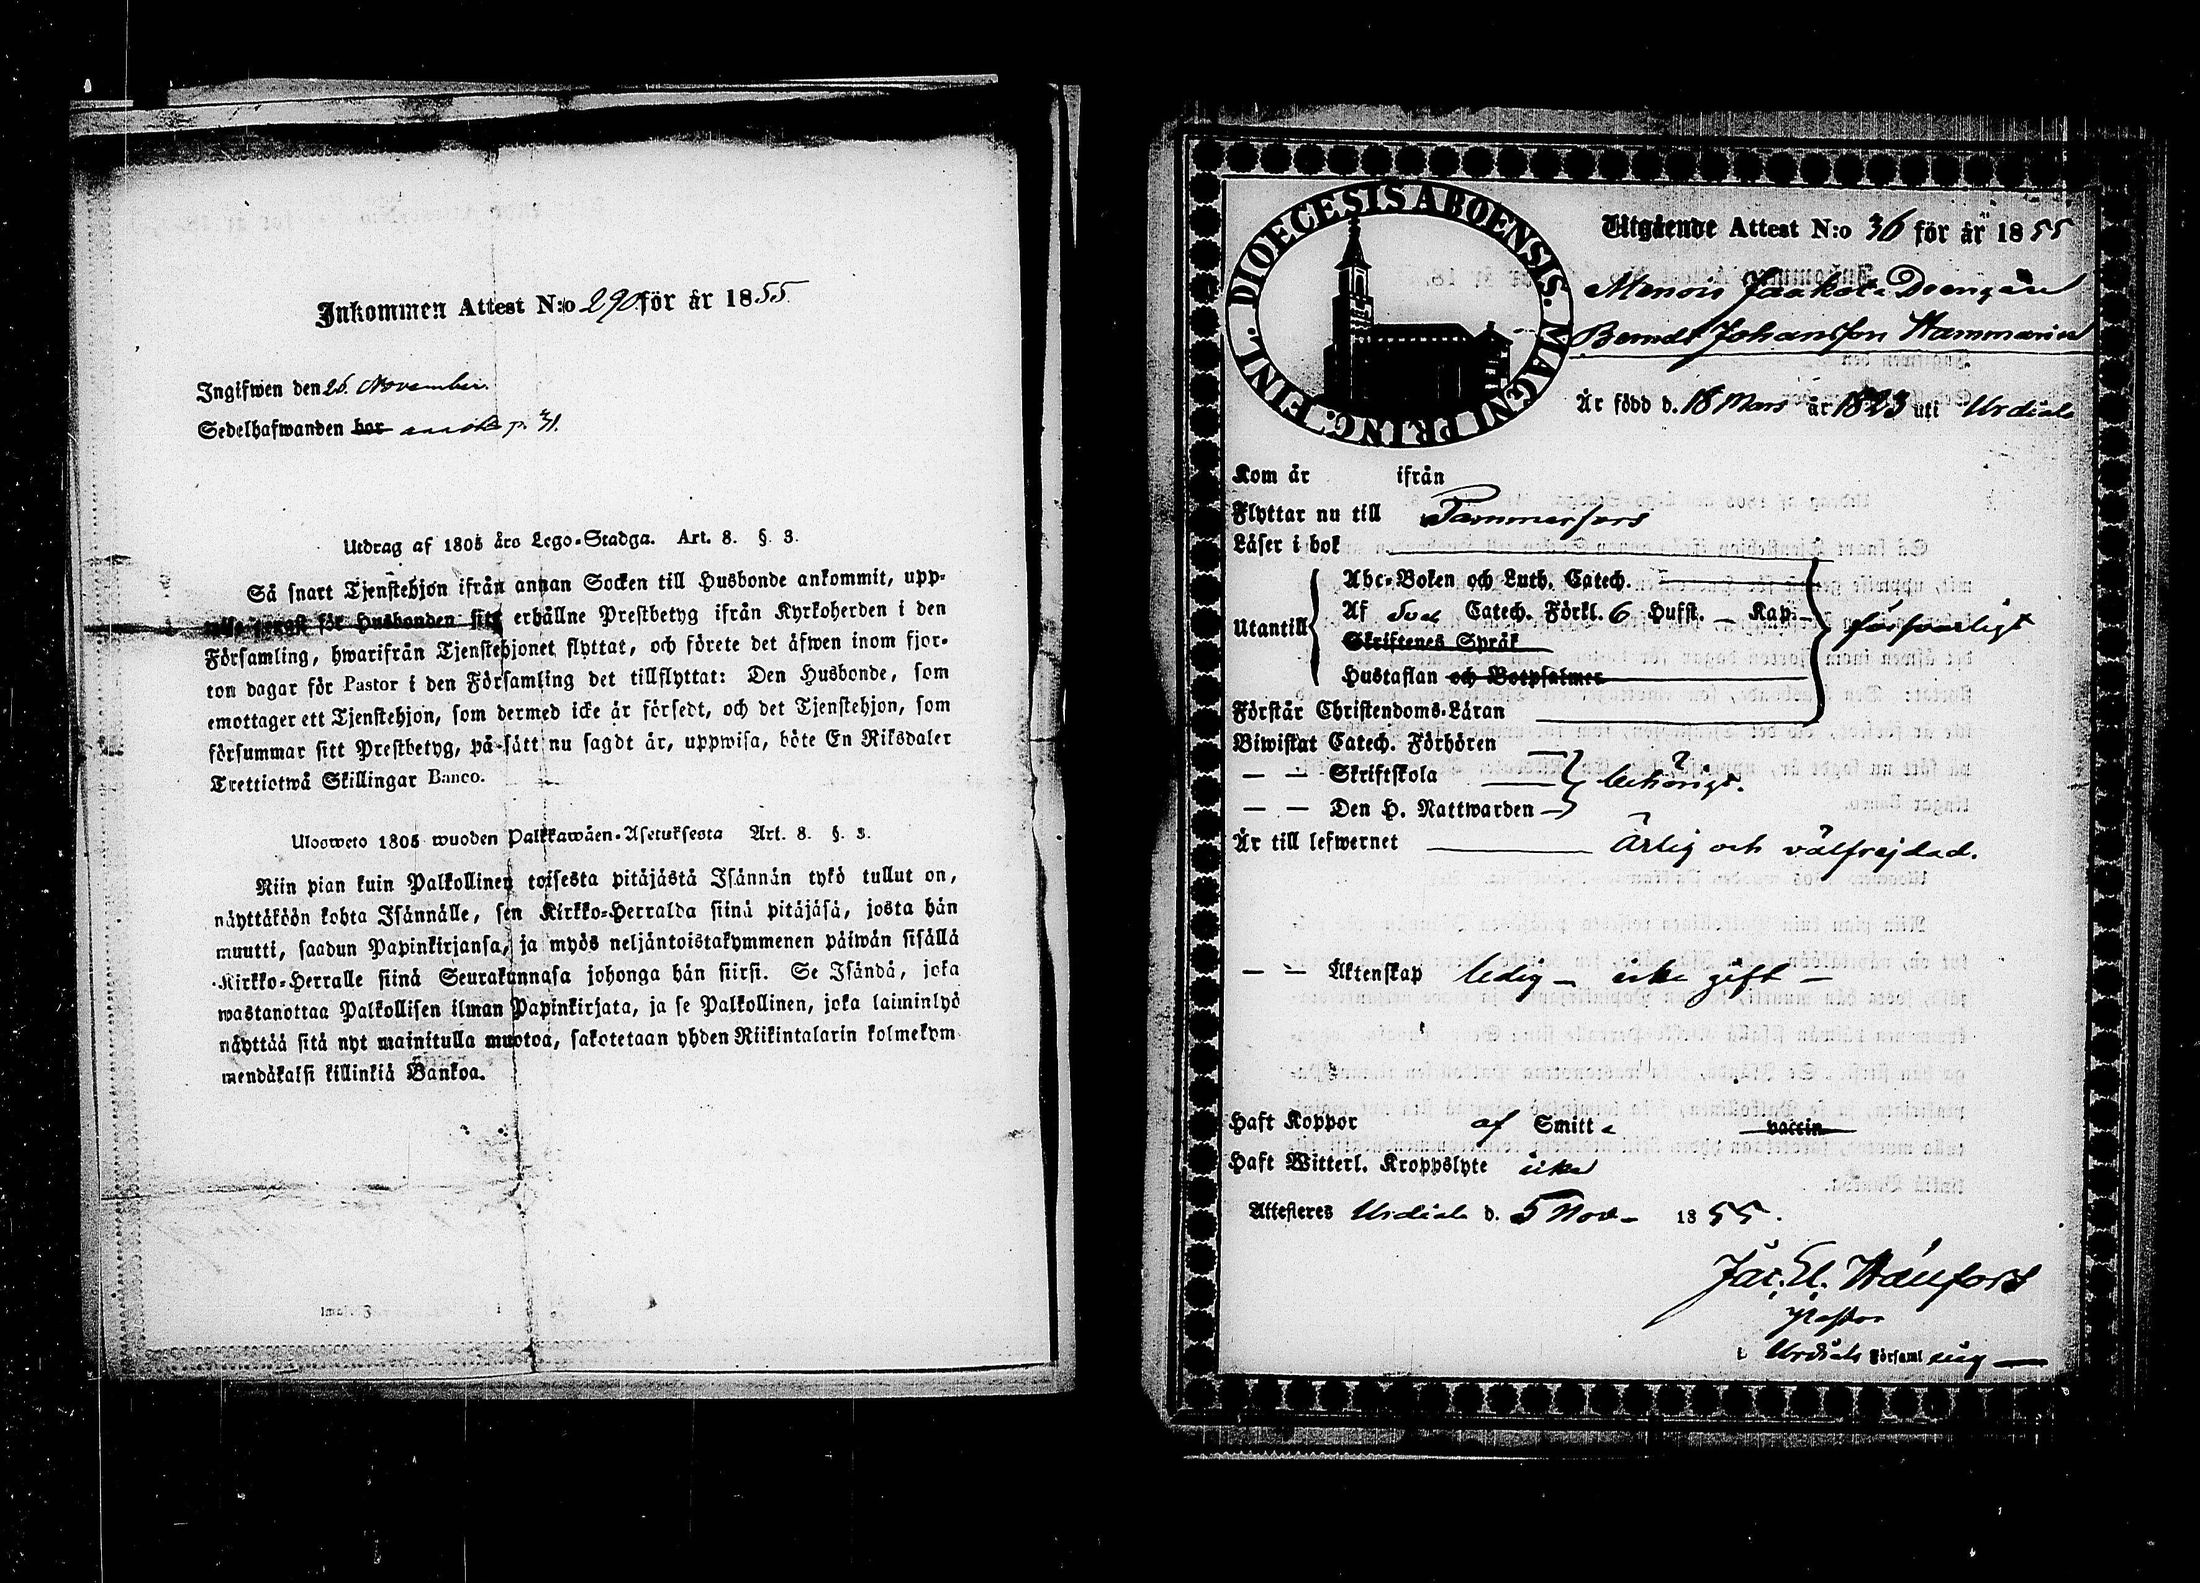 Inkommen Attest N:o 290 för år 1855
Ingifwen den 26. November.
Sedelhafwanden bor p. 31.
Utdrag af 1805 års Lego-Stadga. Art. 8. §. 3.
Så snart Tjenstehjon ifrån annan Socken till Husbonde ankommit, upp-
för Husbonden sitt erhållne Prestbetyg ifrån Kyrkoherden i den
Församling, hwarifrån Tjenstehjonet flyttat, och förete det äfwen inom fjor-
ton dagar för Pastor i den Församling det tillflyttat: Den Husbonde, som
emottager ett Tjenstehjon, som dermed icke är försedt, och det Tjenstehjon, som
försummar sitt Prestbetyg, på sätt nu sagdt är, uppwisa, böte En Riksdaler
Trettiotwå Skillingar Banco.
Ulosweto 1805 wuoden Palkkawäen-Asetuksesta Art. 8. §. 3.
Niin pian kuin Palkollinen toisesta pitäjästä Isännän tykö tullut on,
näyttäköön kohta Isännälle, sen Kirkko-Herralda siinä pitäjäsä, josta hän
muutti, saadun Papinkirjansa, ja myös neljäntoistakymmenen päiwän sisällä
Kirkko-Herralle siinä Seurakunnasa johonga hän siirsi. Se Isändä, joka
wastanottaa Palkollisen ilman Papinkirjata, ja se Palkollinen, joka laiminlyö
näyttää sitä nyt mainitulla muotoa, sakotetaan yhden Riikintalarin kolmekym
mendäkaksi killinkiä Bankoa.
DIOECESIS ABOENSIS. MAGNI PRINC. FINL.
Utgående Attest N:o 36 för år 1855
Menois Jaakola Drengen
Berndt Johansson Hammarin
Är född d. 18 Mars år 1823 uti Urdiala
Kom år ifrån
Flyttar nu till Tammerfors
Läser i bok
Utantill
Abc-Boken och Luth. Catech.
Af Catech. Förkl. 6 Hufst. – Kap. –
Skriftenes Språk
Hustaflan och Botpsalmer
försvarligt
Förstår Christendoms-Läran
Biwistat Catech. Förhören
— — Skriftskola
— — Den H. Nattwarden
behörigt.
Är till lefwernet Ärlig och välfrejdad.
— — Äktenskap ledig – icke gift –
Haft Koppor af Smitta vaccin
Haft Witterl. Kroppslyte icke
Attesteras Urdiala d. 5 Nov. 1855.
Jac. El. Hällfors
Pastor
i Urdiala Församling